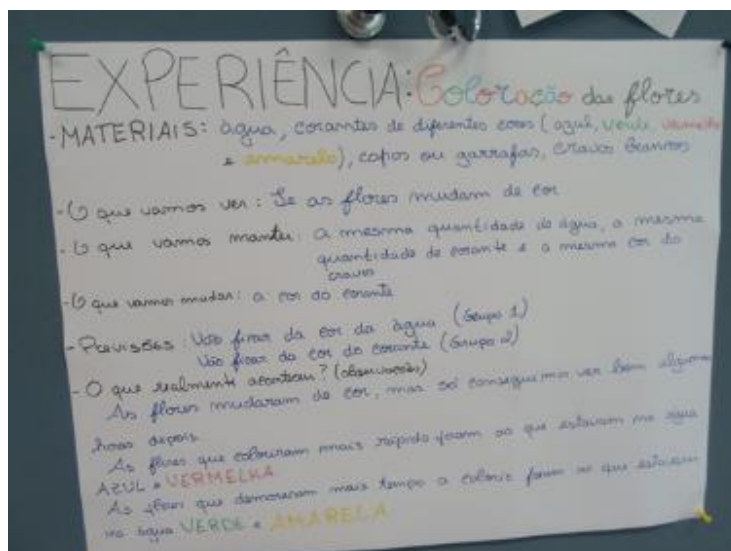 EXPERIÊNCIA: Coloração das flores
- MATERIAIS: água, corantes de diferentes cores (azul, verde, vermelho
e amarelo), copos ou garrafas, cravos brancos
- O que vamos ver: Se as flores mudam de cor
- O que vamos manter: a mesma quantidade de água, a mesma
quantidade de corante e a mesma cor do
cravos
- O que vamos mudar: a cor do corante
- Previsões: Vão ficar da cor da água (Grupo 1)
Vão ficar da cor do corante (Grupo 2)
- O que realmente aconteceu? (observações)
As flores mudaram de cor, mas só conseguimos ver bem algumas
horas depois.
As flores que coloriram mais rápido foram as que estavam na água
AZUL e VERMELHA
As flores que demoraram mais tempo a colorir foram as que estavam
na água VERDE e AMARELA